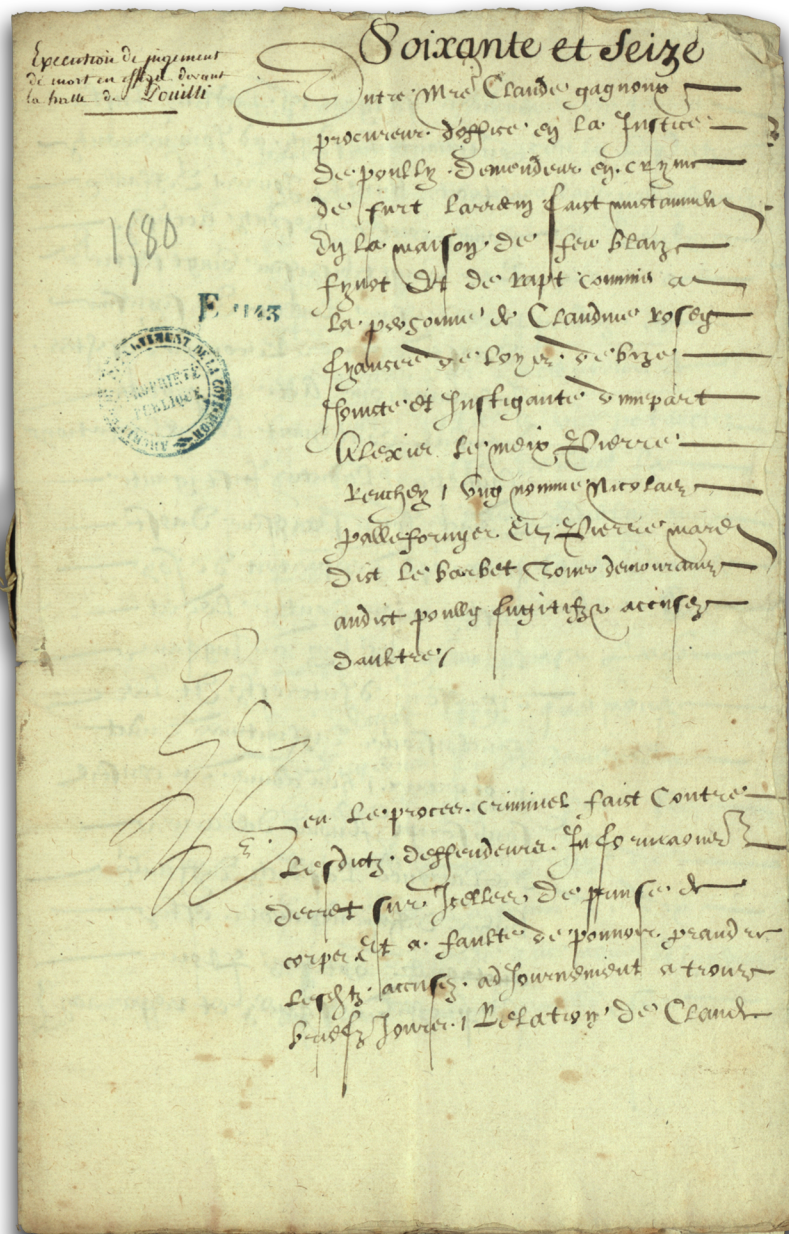 Soixante et Seize
Execution de jugement
de mort en effigie devant
la halle de Pouilli
1580
E 1143
PROPRIETE
PUBLIQUE
Entre Mre Claude gagnoux
procureur d'office en la Justice
de poully demendeur en cryme
de furt larrecin faict nuictamment
en la maison de feu blaize
fynot et de rapt commis a
la personne de Claudine
fyancee de loyez de bize
Joincte et Instigante d'unepart
Alexis le meix Pierre
ung nomme Nicolas
pallefornyer et Pierre
dict le barbet Tous demourans
audict poully fugitifz accusez
daultre
Veu le proces criminel faict Contre
lesdictz deffendeurs Informations
decret sur Icelles de prinse de
corps et a faulte de pouvoir prandre
lesdictz accusez adJournement a trois
briefz Jours Relation de Claude